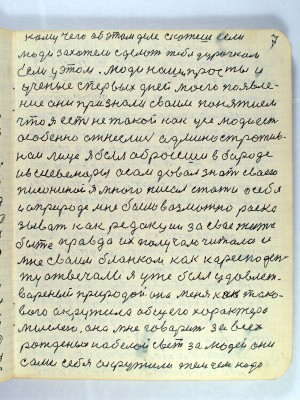 7
кому чего об этом деле скажеш если
люди захотели сделать тебя дурачкам
Если у этом люди наши просты и
ученые с первых дней моего появле-
ние они признали своим понятием
что я есть не такой как усе люди есть
особенно отнеслись административ-
ном лице я был обросший в бароде
из шевелюры а сам давал знать своего
писанина я много писал статей о себе
и о природе мне было возможно раска
зывать как редакции за свае жить
быть правда их получал читал и
мне своим бланком как кореспонден-
ту отвечали я уже был удовлет-
вареный природой она меня как тако-
вого окружила общего характера
мыслею, она мне говарит за всех
рожденых на белой свет за людей они
сами себя окружили тем чем надо